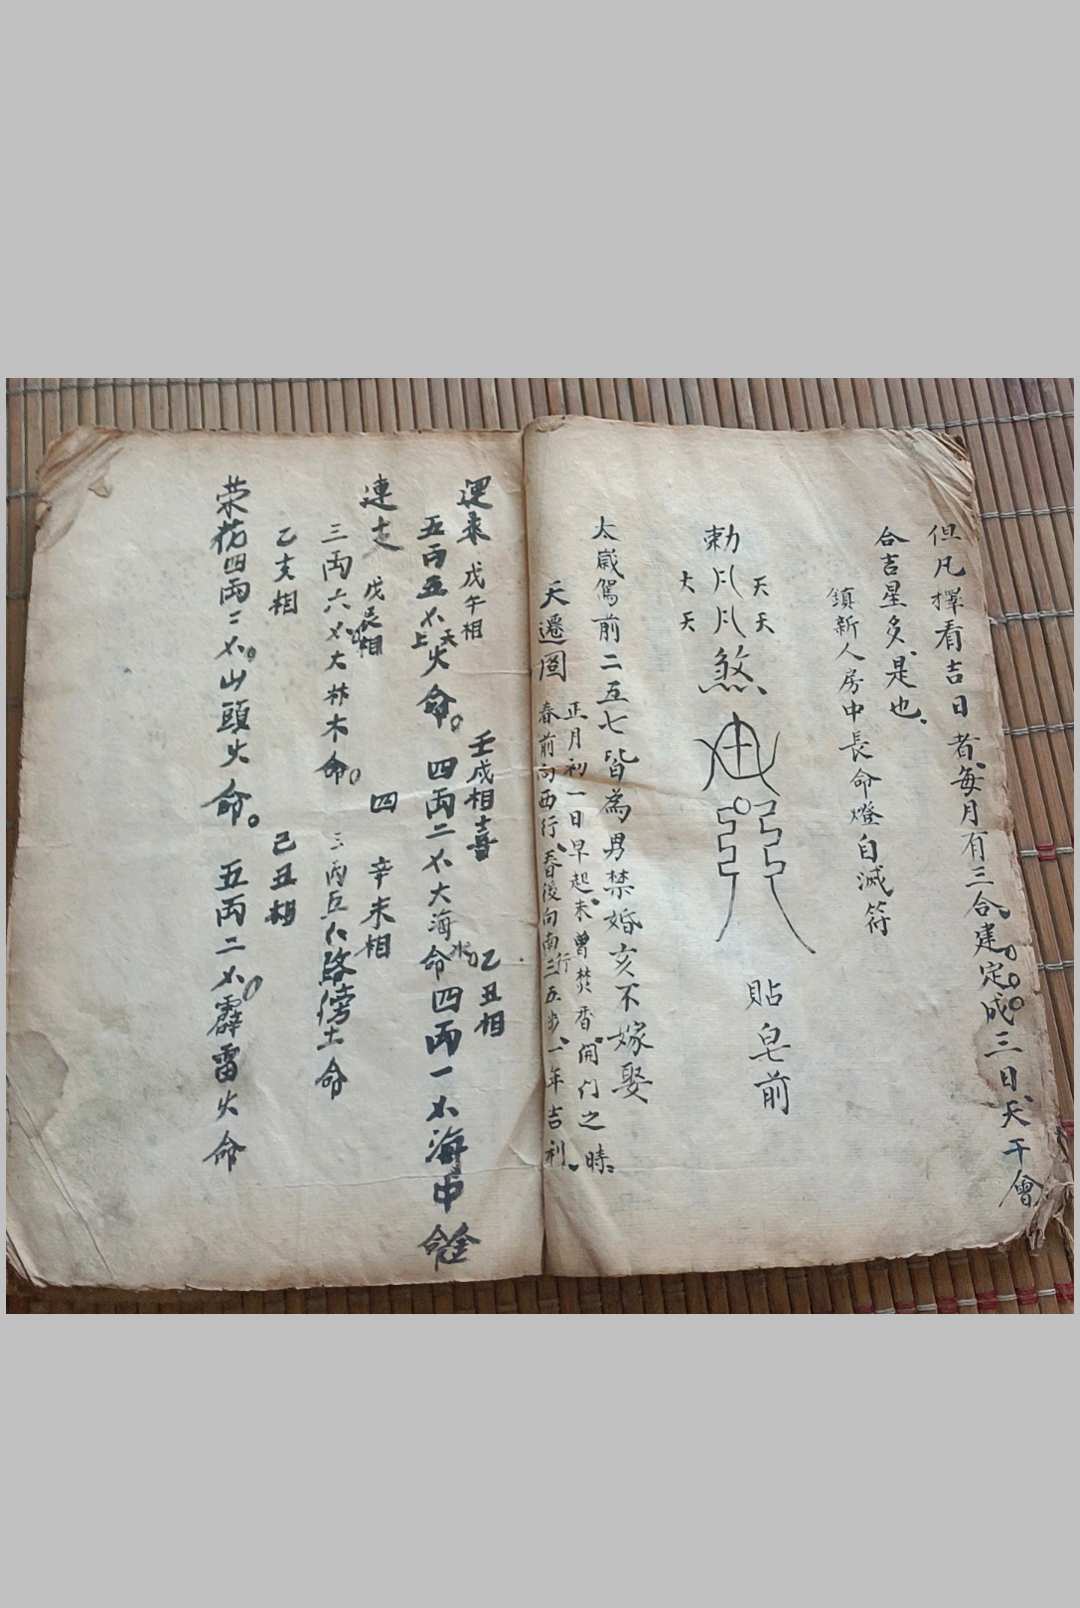 但凡擇看吉日者每月有三合建定成三日天干會
合吉星多是也
鎮新人房中長命燈自滅符
天天
勅
煞
大天
貼皂前
太歲駕前二五七皆為男禁婚亥不嫁娶
天遷圖
正月初一日早起未曾焚香開门之時
春前向西行春後向南行三五步一年吉利
戊午相
壬戌相喜
乙丑相
五两五
天上火命
四两二
大海水命
四两一
海中金命
連支
戊辰相
四
辛未相
三两六
大林木命
三两五
路傍土命
乙亥相
己丑相
荣花四两二
山頭火命
五两二
霹雷火命